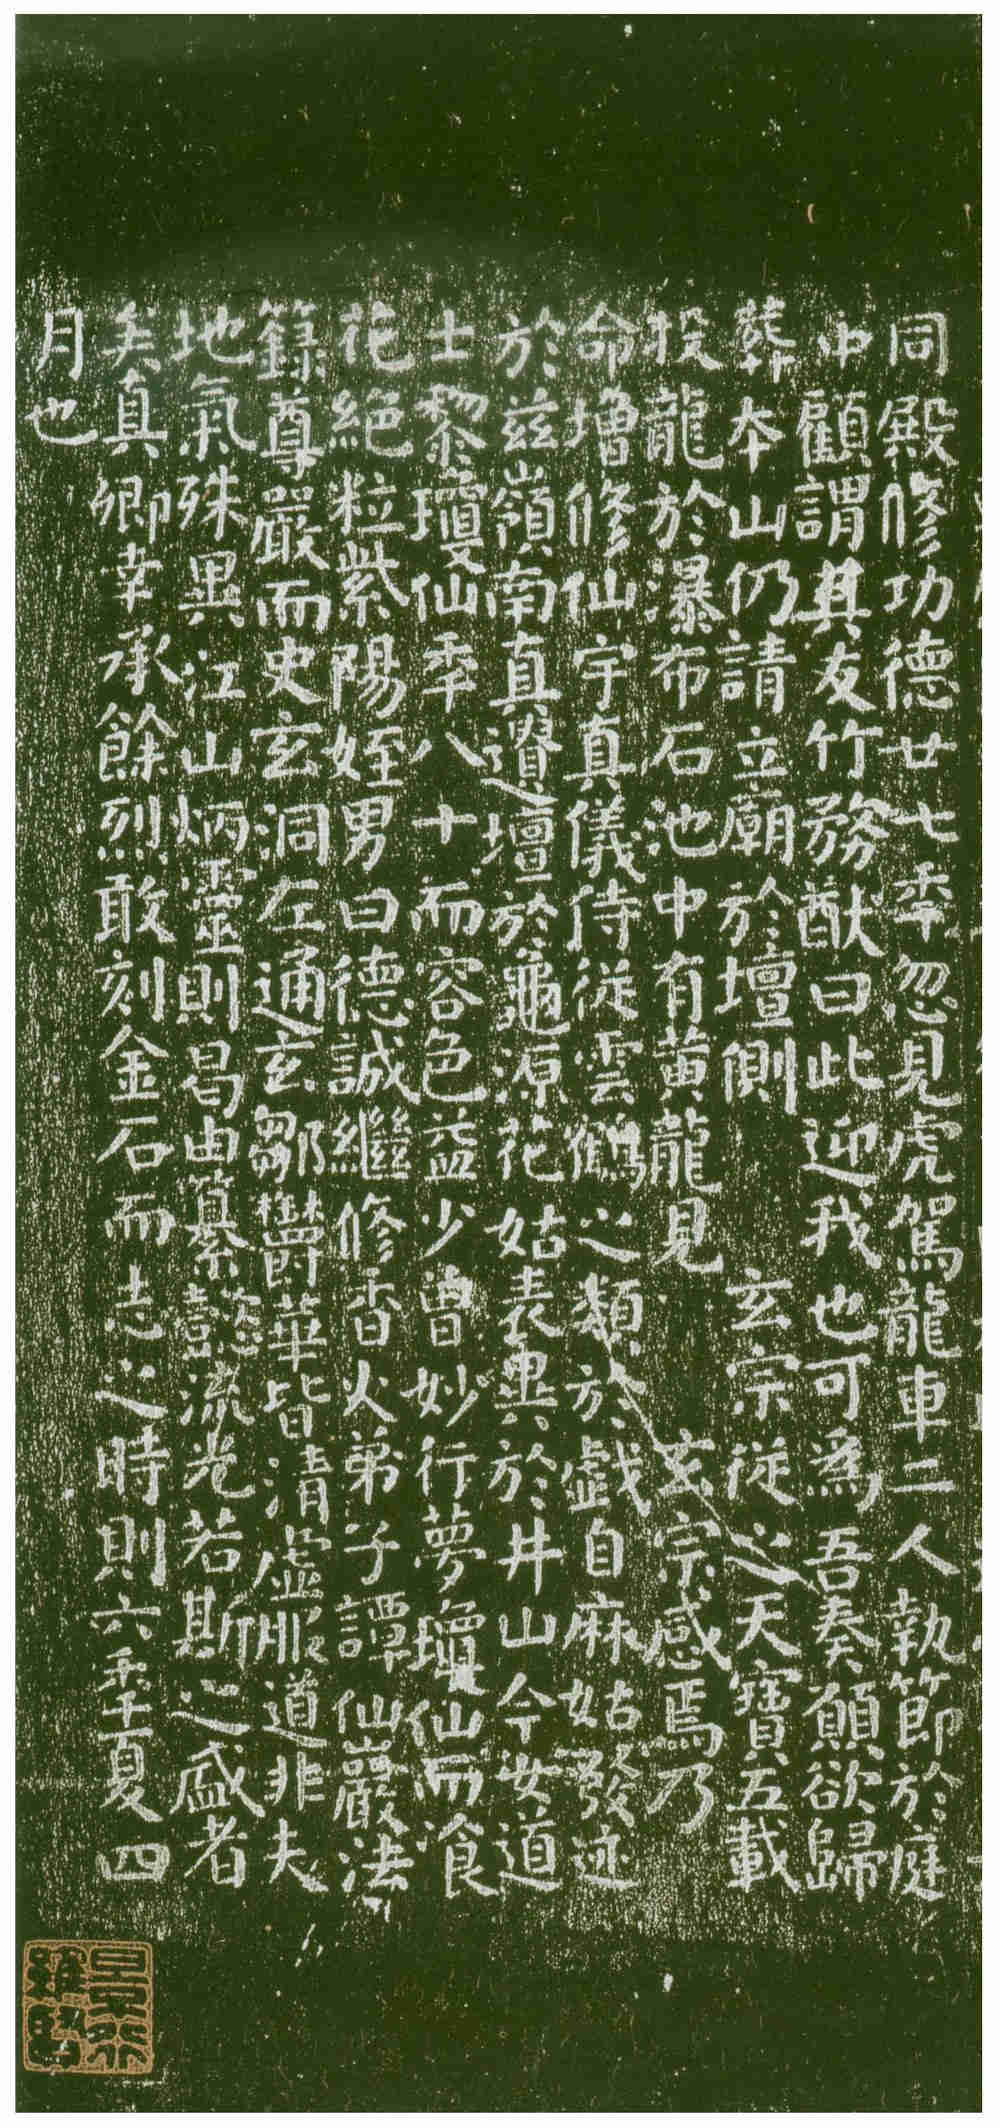 同殿修功德廿七秊忽見虎駕龍車二人執節於庭
中顧謂其友竹務猷曰此迎我也可為吾奏願欲歸
葬本山仍請立廟於壇側玄宗從之天寶五載
投龍於瀑布石池中有黃龍見玄宗感焉乃
命增修仙宇真儀侍從雲鶴之類於戲自麻姑發迹
於茲嶺南真遺壇於龜源花姑表異於井山今女道
士黎瓊仙秊八十而容色益少曾妙行夢瓊仙而飡
花絕粒紫陽姪男曰德誠繼修香火弟子譚仙巖法
籙尊嚴而史玄洞左通玄鄒鬱華皆清虛服道非夫
地氣殊異江山炳靈則曷由纂懿流光若斯之盛者
矣真卿幸承餘烈敢刻金石而志之時則六秊夏四
月也